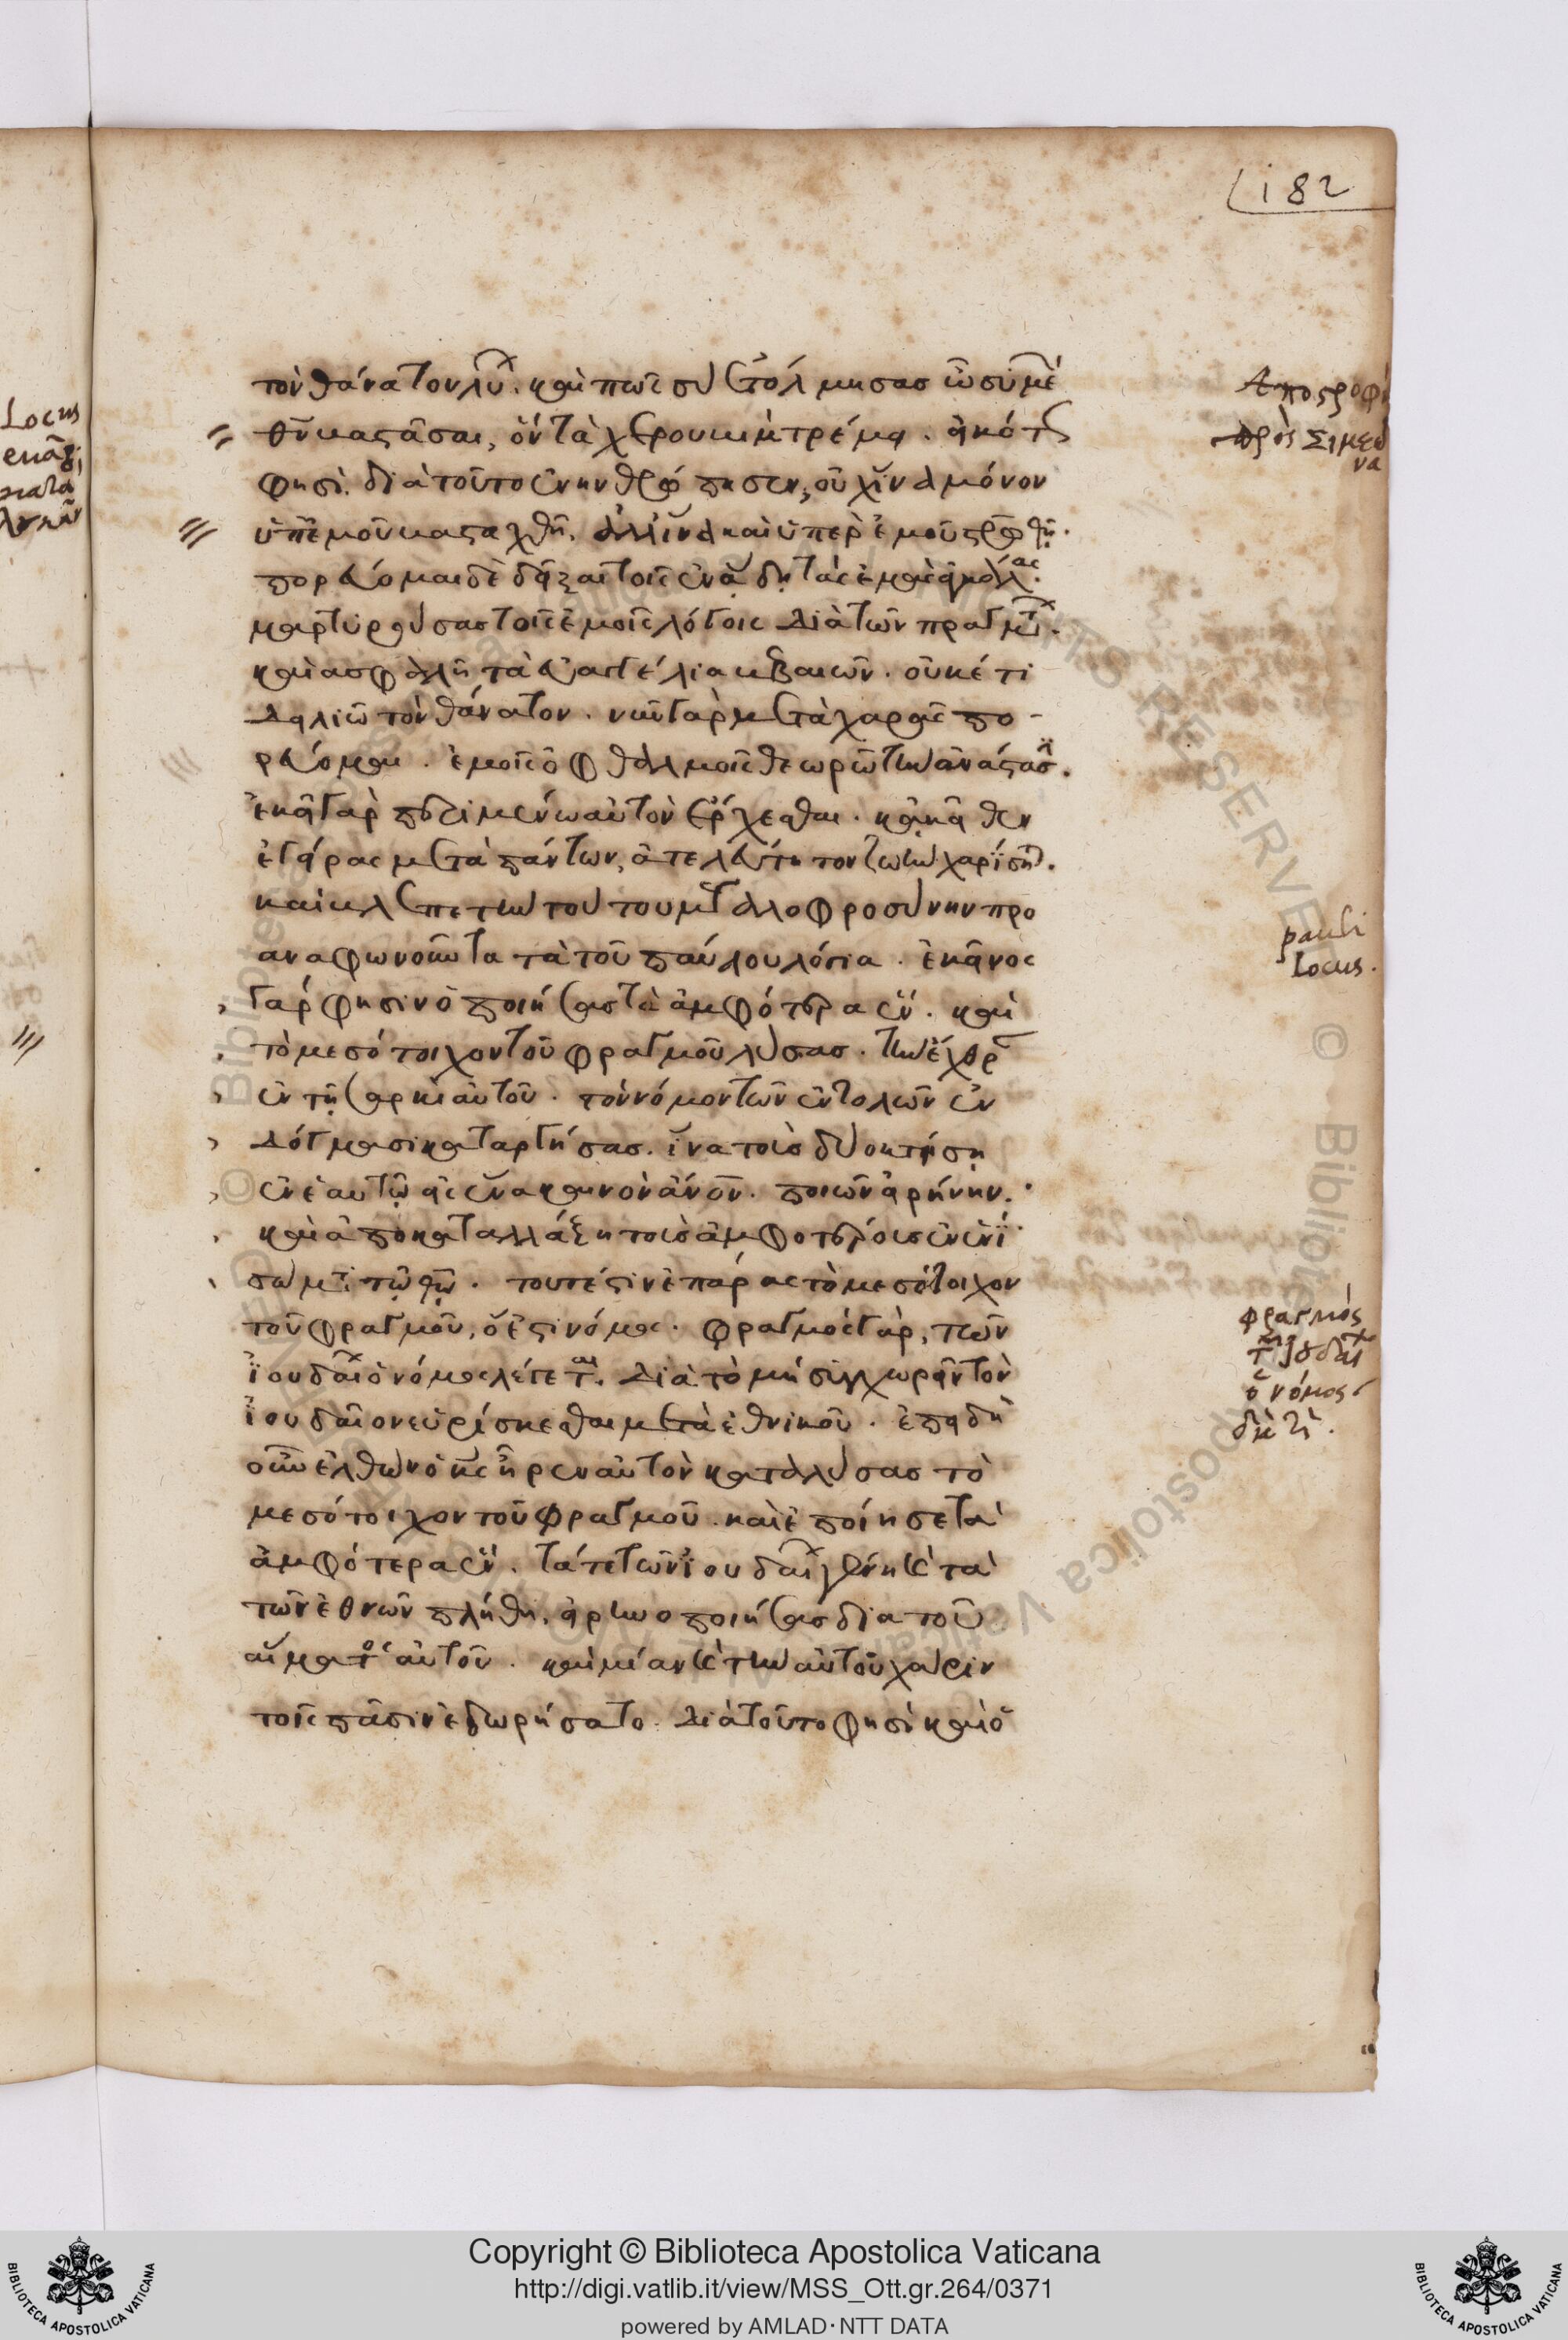 182
τὸν θάνατον λύ. καὶ πῶς σὺ ἐτόλμησας ὦ συμὲ
θῦ κατᾶσαι, ὃν τὰ χερουβὶμ τρέμει. εἰκότ
φησὶ. διὰ τοῦτο ἐνηνθρώπησεν, οὐχ ἵνα μόνον
ὑπ' ἐμοῦ βασταχθῆ. ἀλλ' ἵνα καὶ ὑπὲρ ἐμοῦ σρωθῆ.
πορεύομαι δὲ δεῖξαι τοῖς ἐν ἅδη τὰς ἐμὰς
μαρτυρούσας τοῖς ἐμοῖς λόγοις διὰ τῶν πραγμτ.
καὶ ἀσφαλῆ τὰ εὐαγγέλια βεβαιῶν. οὐκέτι
δειλιῶ τὸν θάνατον. νῦν γὰρ μετὰ χαρᾶς πο-
ρεύομαι. ἐμοῖς ὀφθαλμοῖς θεωρῶ τὴν ἀνάστασ.
ἐκεῖ γὰρ περιμένω αὐτὸν ἔρχεσθαι. κἀκεῖθεν
ἐγείρας μετὰ πάντων, ἀτελεύτητον ζωὴν χαρίση.
καὶ βλέπε τὴν τούτου μεγαλοφροσύνην προ
αναφωνοῦντα τὰ τοῦ παύλου λόγια. ἐκεῖνος
γάρ φησιν ὁ ποιήσας τὰ ἀμφότερα ἕν. καὶ
τὸ μεσότοιχον τοῦ φραγμοῦ λύσας. τὴν ἔχθρ
ἐν τῇ σαρκὶ αὐτοῦ. τὸν νόμον τῶν ἐντολῶν ἐν
δόγμασι καταργήσας. ἵνα τοὺς δύο κτήση
ἐν ἑαυτῷ εἰς ἕνα καινὸν ἄνον. ποιῶν εἰρήνην.
καὶ ἀποκαταλλάξη τοὺς ἀμφοτέρους ἐν ἑνὶ
σώμτι τῷ θῷ. τουτέστιν ἐπάρας τὸ μεσότοιχον
τοῦ φραγμοῦ, ὅ ἐστι νόμος. φραγμὸς γὰρ, τῶν
ἰουδαί ὁ νόμος λέγεται. διὰ τὸ μὴ συγχωρεῖν τὸν
ἰουδαῖον εὑρίσκεσθαι μετὰ ἐθνικοῦ. ἐπειδὴ
οὖν ἐλθὼν ὁ κς ἦρεν αὐτὸν καταλύσας τὸ
μεσότοιχον τοῦ φραγμοῦ. καὶ ἐποίησε τὰ
ἀμφότερα ἕν. τά τε τῶν ἰουδαί γένη καὶ τὰ
τῶν ἐθνῶν πλήθη, εἰρηνοποιήσας διὰ τοῦ
αἵματος αὐτοῦ. καὶ μίαν καὶ τὴν αὐτοῦ χάριν
τοῖς πᾶσιν ἐδωρήσατο. διὰ τοῦτο φησὶ καὶ ὁ
Αποστροφὴ
πρὸς Σιμεω
να
pauli
locus.
φραγμός
τ Ἰουδαί
ὁ νόμος
διὰ τί.
Locus
Copyright © Biblioteca Apostolica Vaticana
http://digi.vatlib.it/view/MSS_Ott.gr.264/0371
powered by AMLAD·NTT DATA
BIBLIOTECA APOSTOLICA VATICANA
BIBLIOTECA APOSTOLICA VATICANA